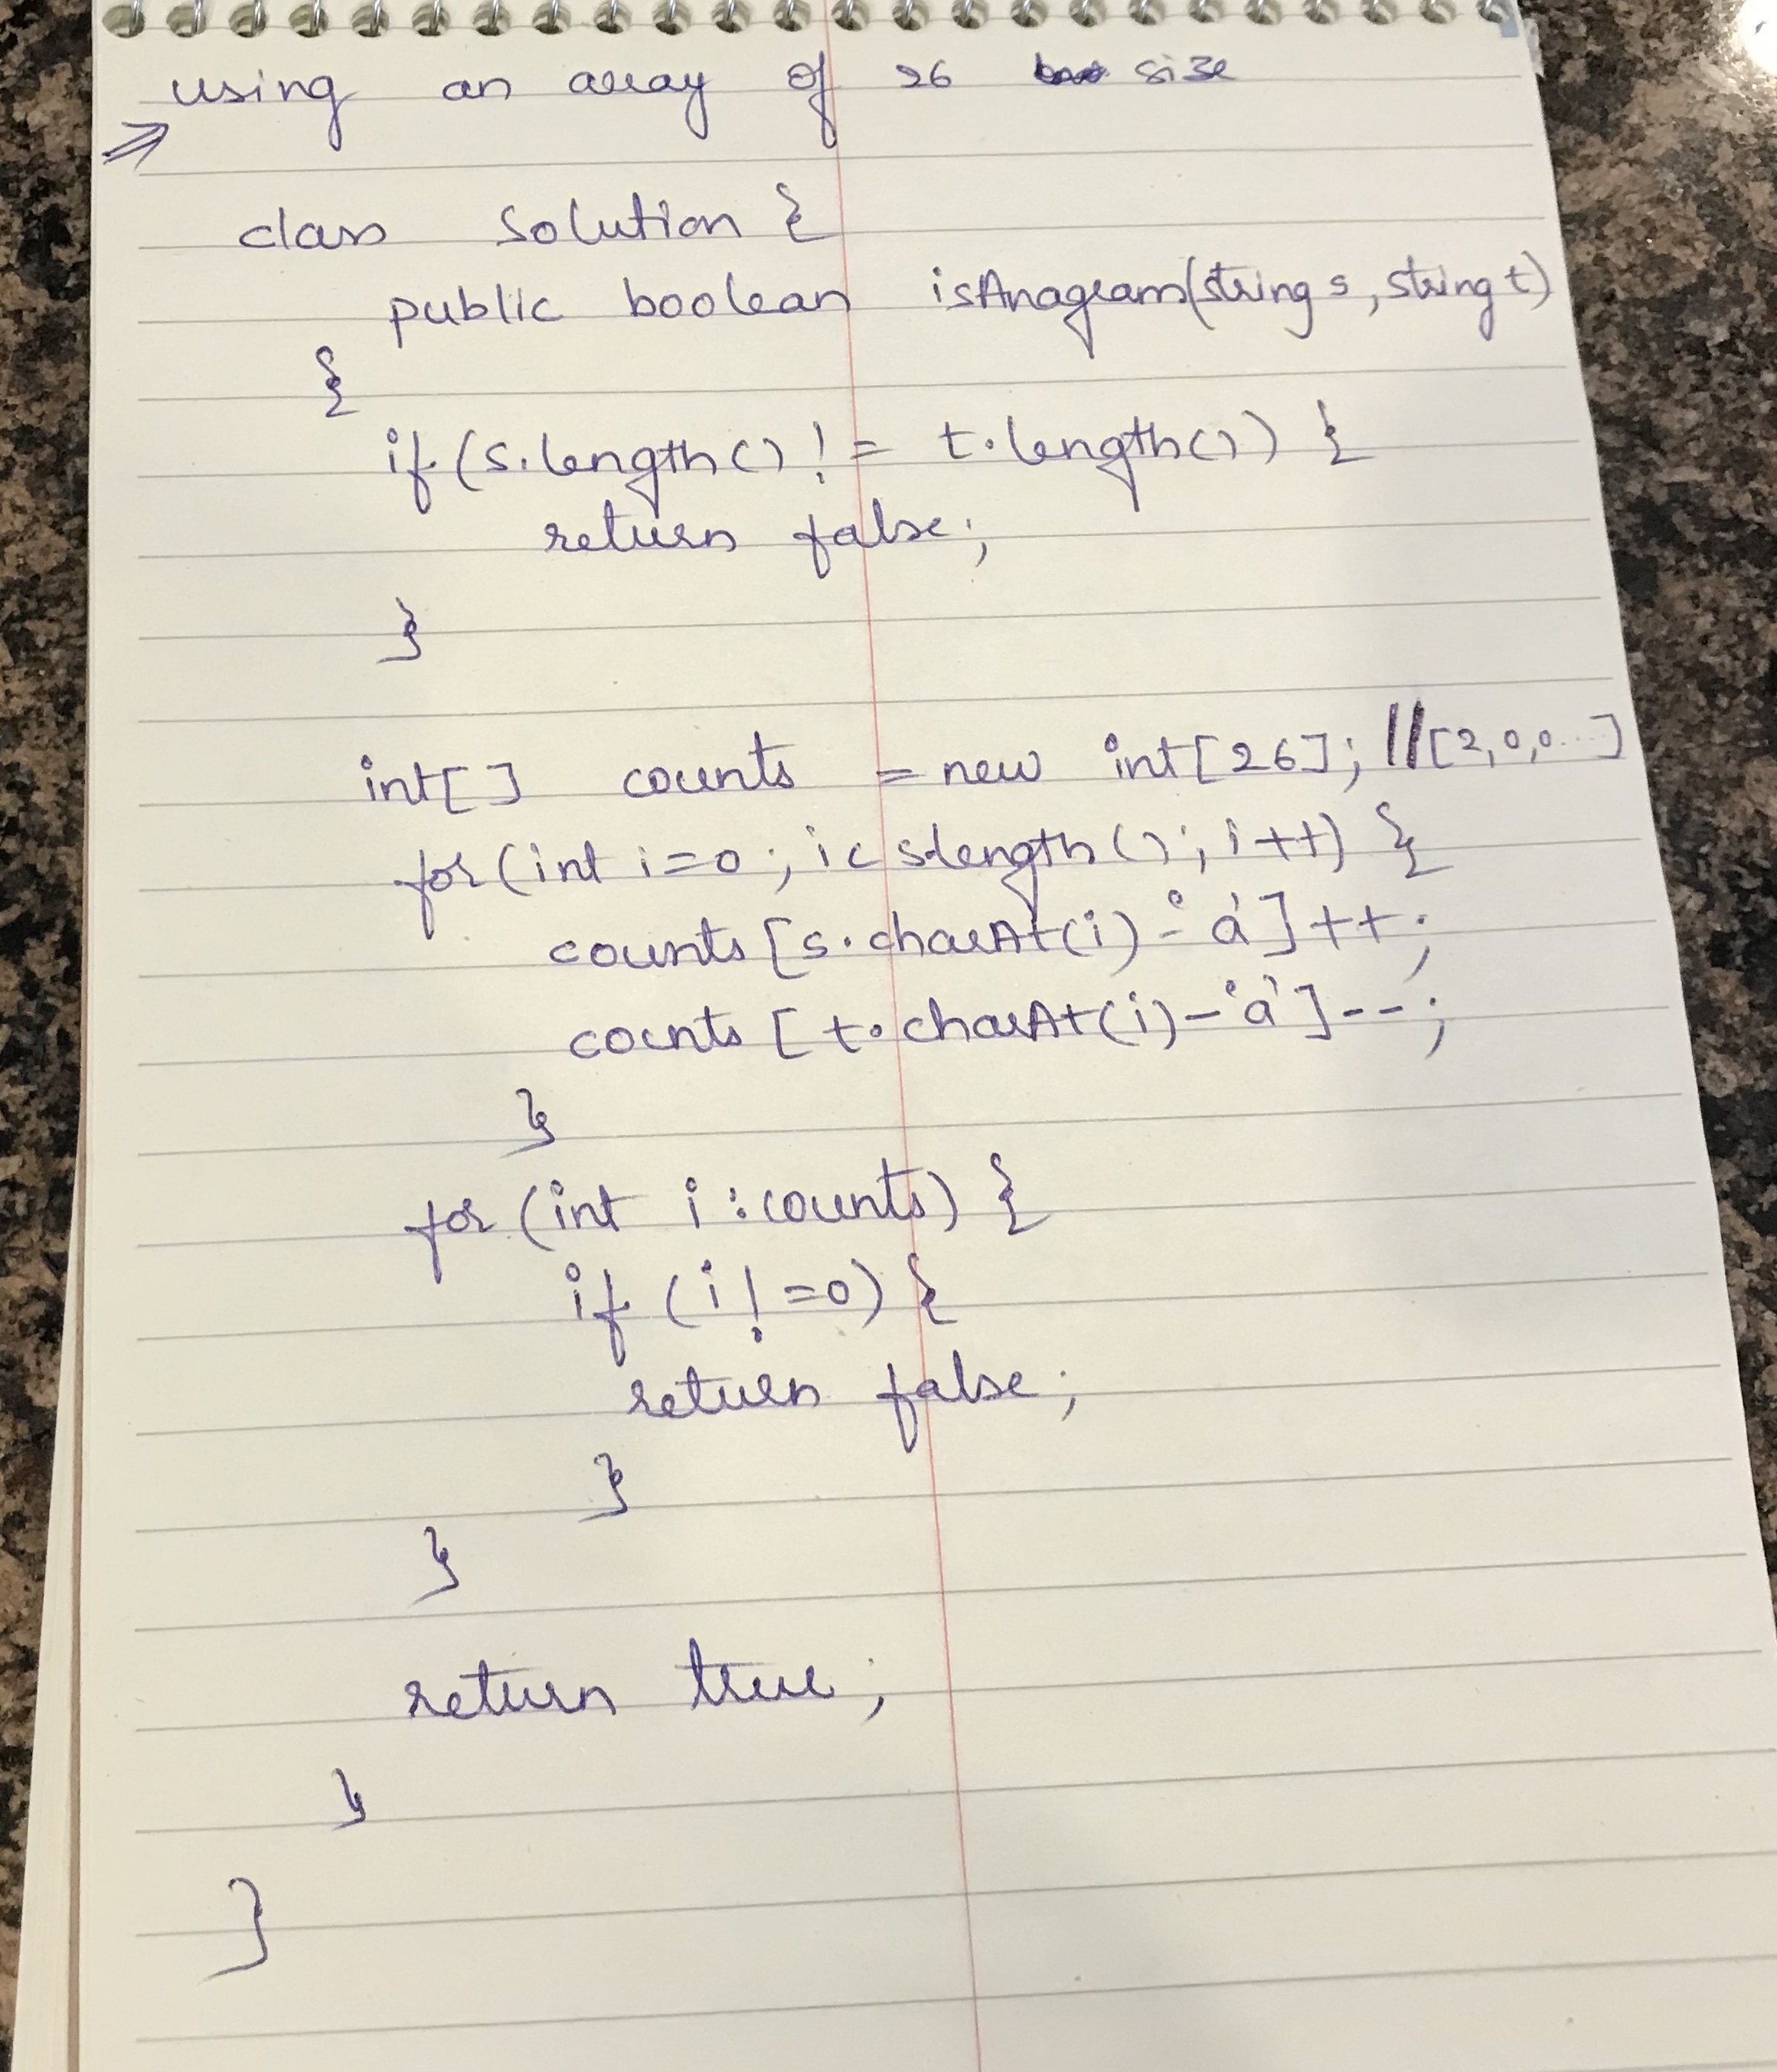 using an array of 26 size
⇒
class Solution {
public boolean isAnagram(string s, string t)
{
if (s.length() != t.length()) {
return false;
}
int[] counts = new int[26]; //[2,0,0...]
for (int i=0; i< s.length(); i++) {
counts [s.charAt(i) - 'a'] ++;
counts [t.charAt(i) - 'a'] --;
}
for (int i : counts) {
if (i != 0) {
return false;
}
}
return true;
}
}